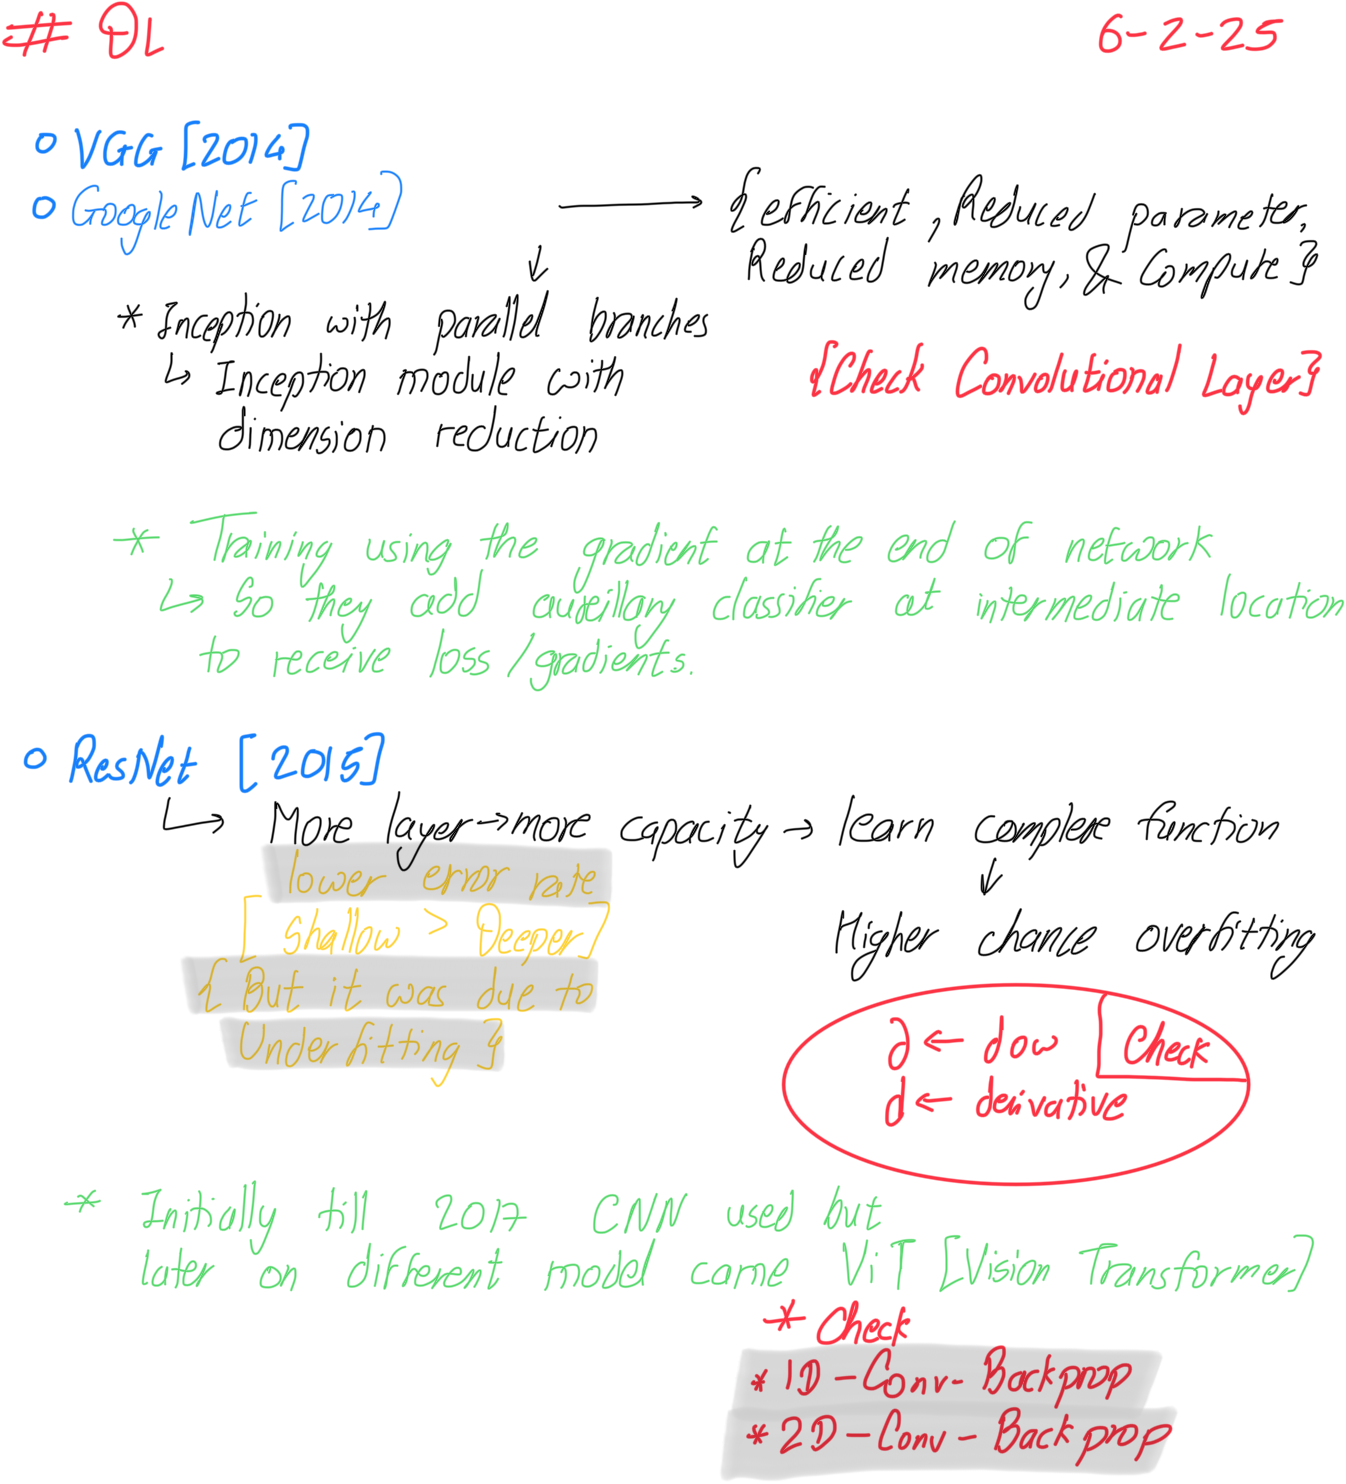 # DL
6-2-25
○ VGG [2014]
○ GoogleNet [2014]
→ {efficient, Reduced parameter,
Reduced memory, & Compute}
↓
* Inception with parallel branches
↳ Inception module with
dimension reduction
{Check Convolutional Layer}
* Training using the gradient at the end of network
↳ So they add auxillary classifier at intermediate location
to receive loss/gradients.
○ ResNet [2015]
↳ More layer → more capacity → learn complexe function
↓
Higher chance overfitting
lower error rate
[Shallow > Deeper]
{But it was due to
Underfitting}
∂ ← dow
Check
d ← derivative
* Initially till 2017 CNN used but
later on different model came ViT [Vision Transformer]
* Check
* 1D-Conv-Backprop
* 2D-Conv-Backprop